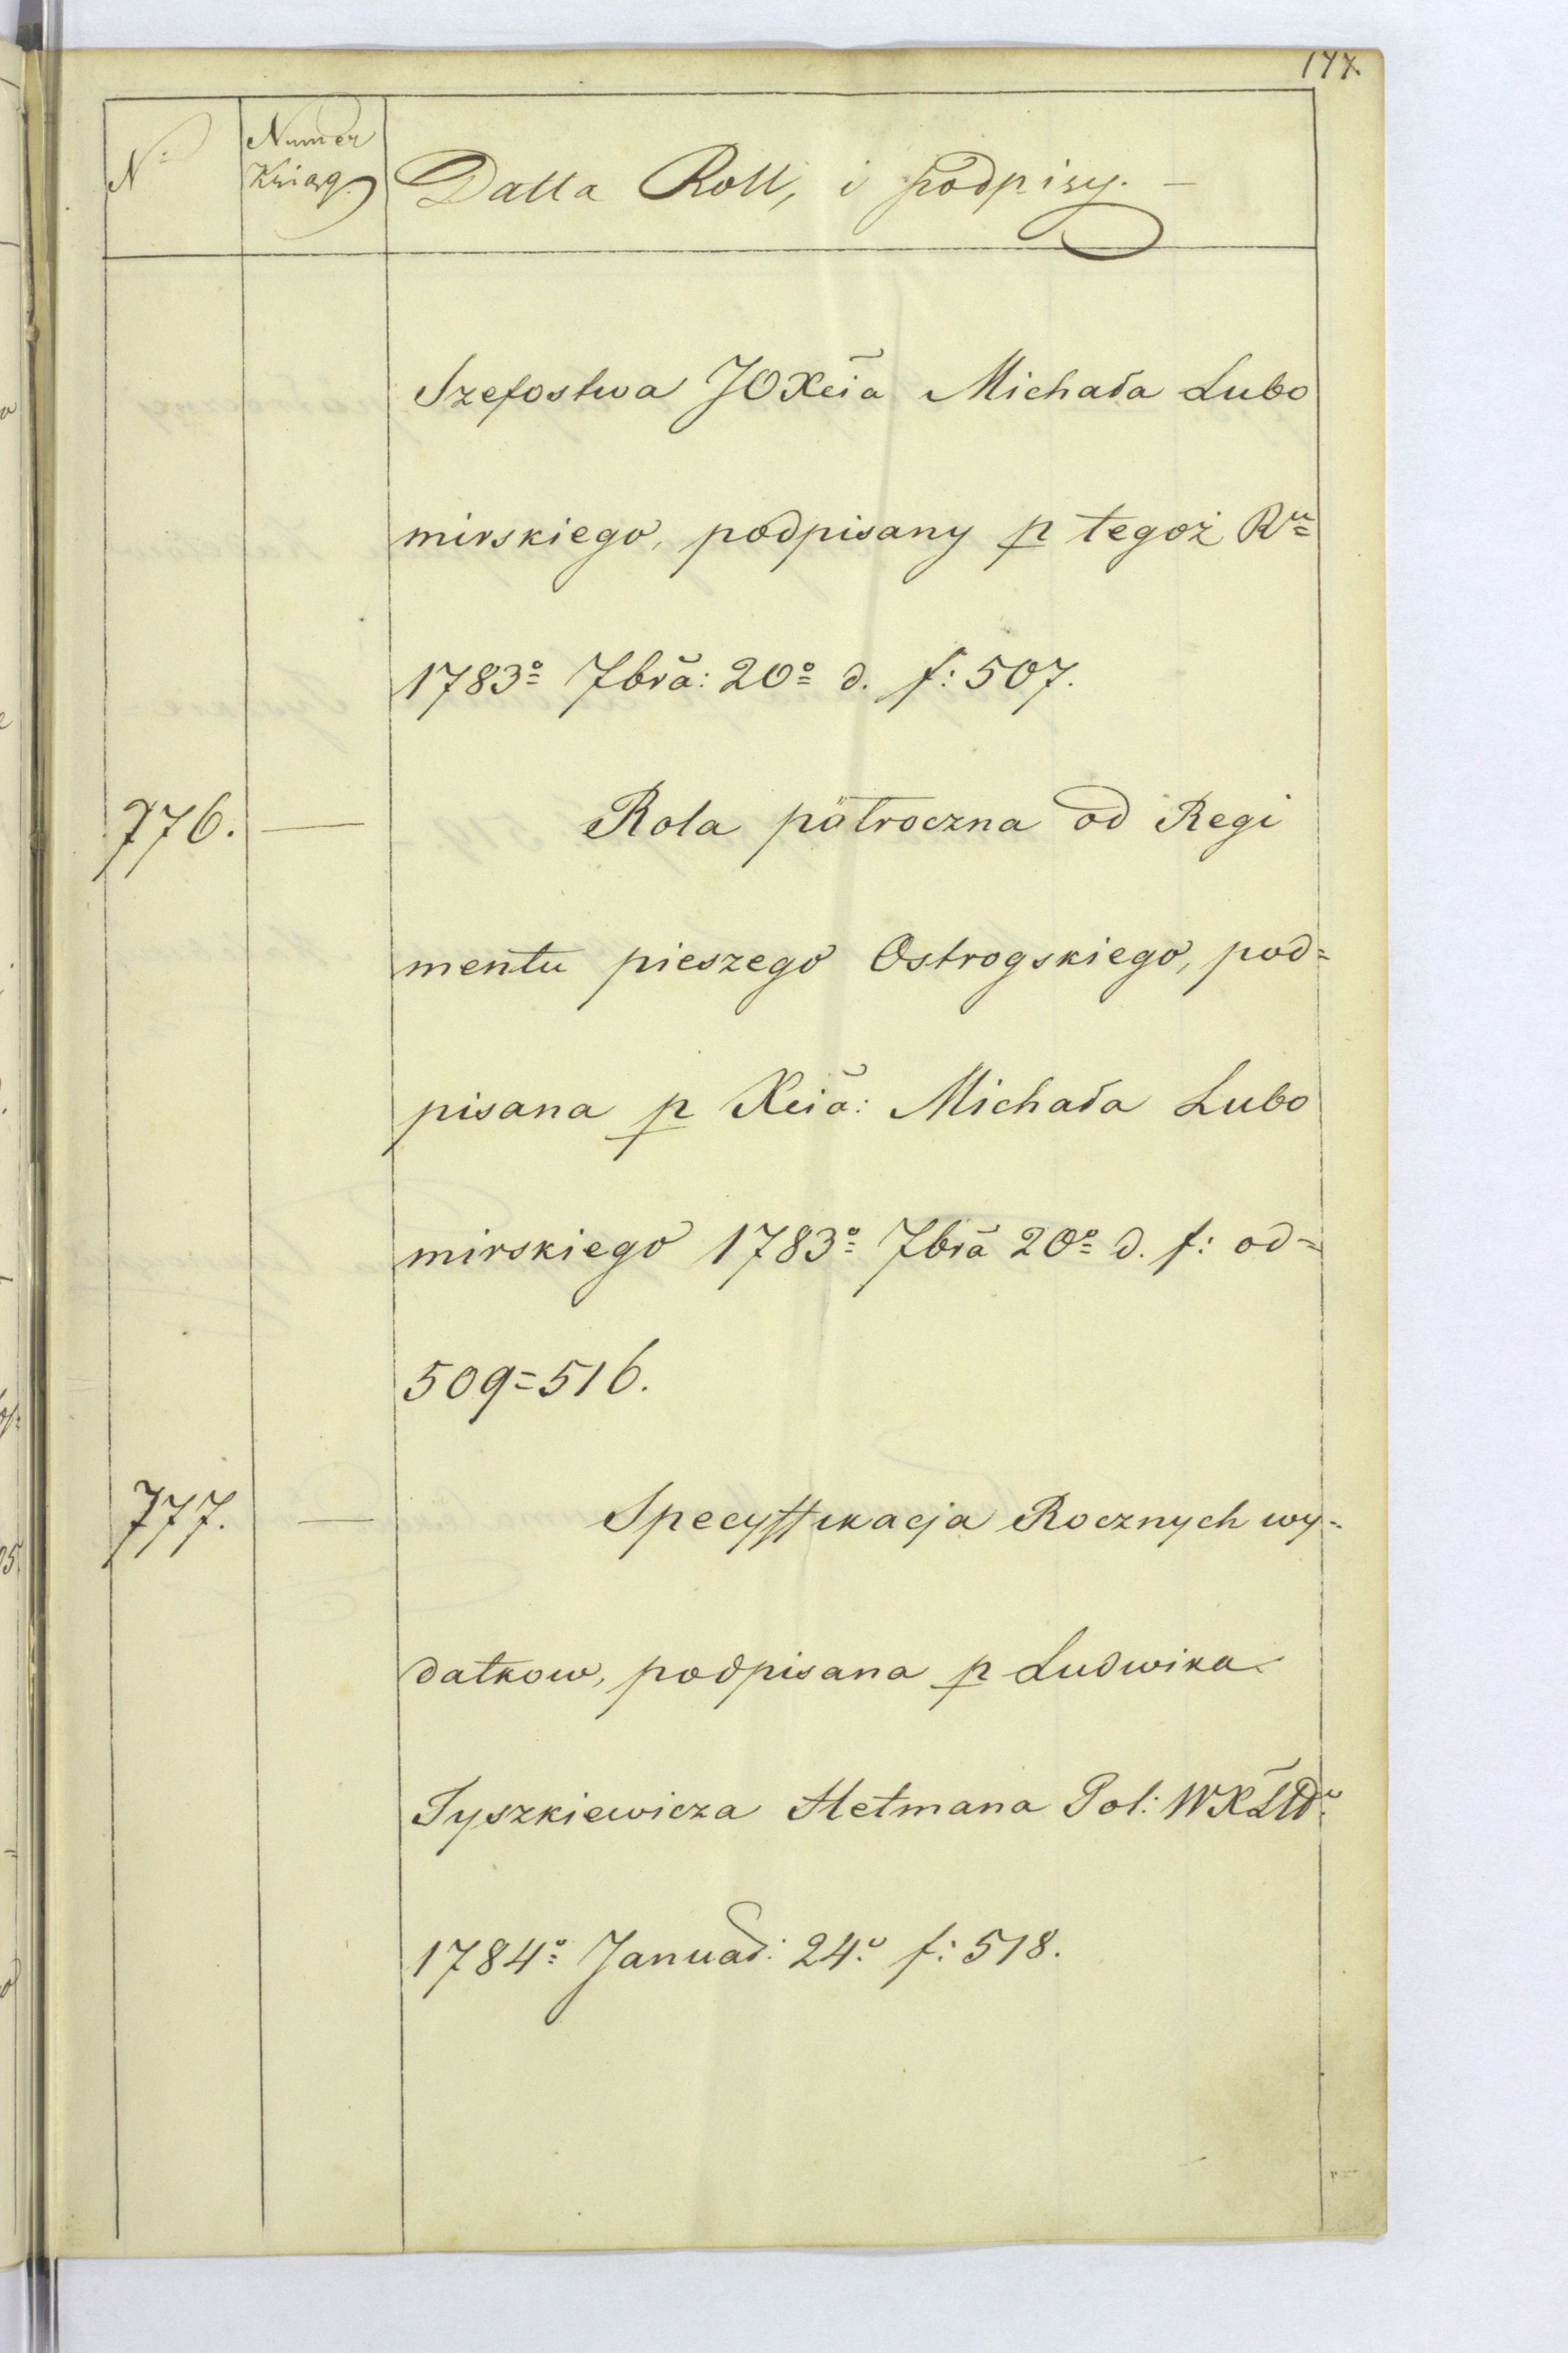 177.
N: Numer Xsiąg Datta Roll, i podpisy. -
Szefostwa JOXcia Michała Lubo
mirskiego, podpisany p tegoż Ru=
1783o= 7bra: 20o= d. f: 507.
776. — Rola półroczna od Regi
mentu pieszego Ostrogskiego, pod=
pisana p Xcia: Michała Lubo
mirskiego 1783o= 7bra 20o= d. f: od=
509=516.
777. — Specyffikacja Rocznych wy=
datkow, podpisana p Ludwika
Tyszkiewicza Hetmana Pol: WXLtt
1784o= Januar: 24o f: 518.